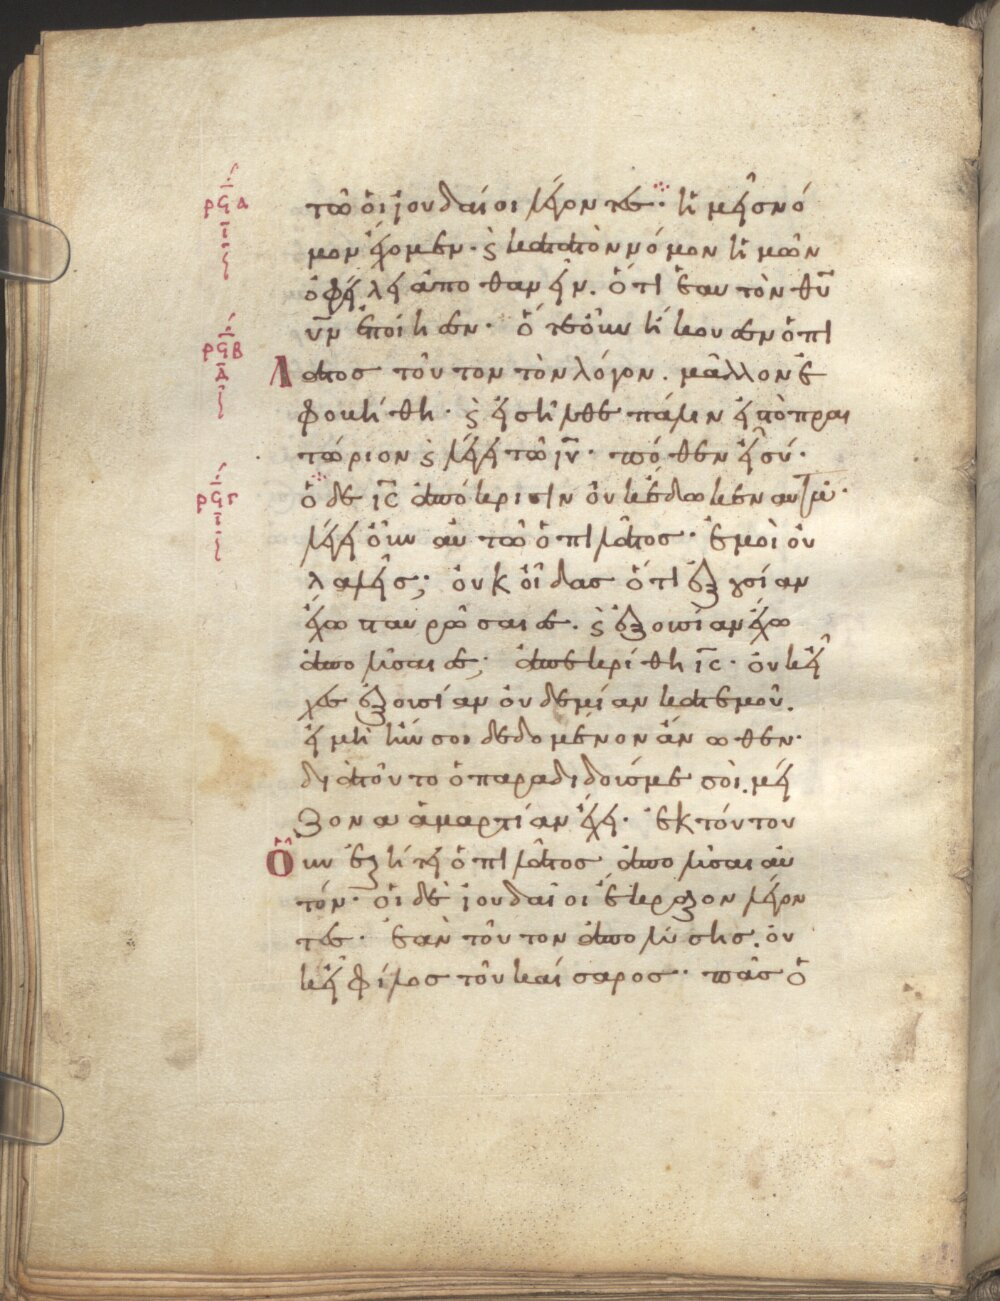 ρϟα
ι
τῶ ὁι ϊουδαίοι λέγοντες· ἡμῆς νό
μον ἔχομεν· ϛ κατατὸν νόμον ἡμῶν
ὀφήλη ἀποθανῆν. ὅτι ἑαυτὸν θῦ
ῡν ἐποίησεν· ὅτε ὀῦν ἤκουσεν ὁ πι
ρϟβ
δ
λάτος τοῦτον τὸν λόγον. μᾶλλον ἐ
φοβήθη· ϛ ἐισῆλθε πάλιν ἠς τὸ πραι
τώριον ϛ λέγη τῶ ιῦ· πόθεν ἦ σύ·
ρϟγ
ι
ὁ δε ις ἀπόκρισιν ὀυκ ἔδωκεν αυτῶ·
λέγη ὀῦν αυτῶ ὁ πιλάτος· ἐμοὶ ὀυ
λαλῆς; ὀυκ ὀῖδας ὅτι ἐξουσίαν
ἔχω σταυρῶσαι σε. ϛ ἐξουσίαν ἔχω
ἀπολῦσαι σε; ἀπεκρίθη ις· ὀυκ ἦ
χες ἐξουσίαν ὀυδεμίαν κατεμοῦ.
ἠ μὴ ἦν σοι δεδομένον ἄνωθεν·
διατοῦτο ὁ παραδιδούς με σοι. μή
ζονα ἁμαρτίαν ἔχη· ἐκ τούτου
ὀυν ἐζήτη ὁ πιλάτος ἀπολῦσαι αυ
τόν· ὁι δὲ ϊουδαίοι ἔκραζον λέγον
τες· ἐὰν τοῦτον ἀπολύσης. ὀυ
κ ἦ φίλος τοῦ καίσαρος· πᾶς ὁ